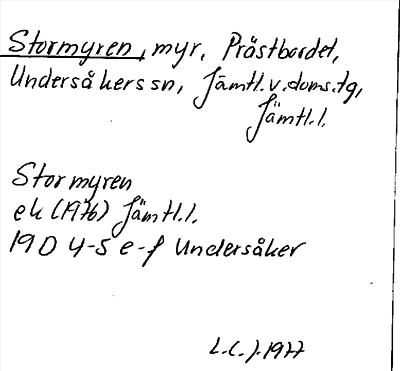 Stormyren, myr, Prästbordet,
Undersåkers sn, Jämtl.v.doms.tg,
Jämtl.l.
Stormyren
ek (1976) Jämtl.l.
19D 4-5 e-f Undersåker
L.C.J. 1977